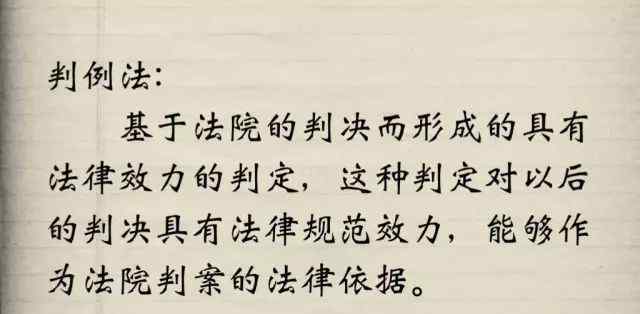 判例法：
基于法院的判决而形成的具有
法律效力的判定，这种判定对以后
的判决具有法律规范效力，能够作
为法院判案的法律依据。